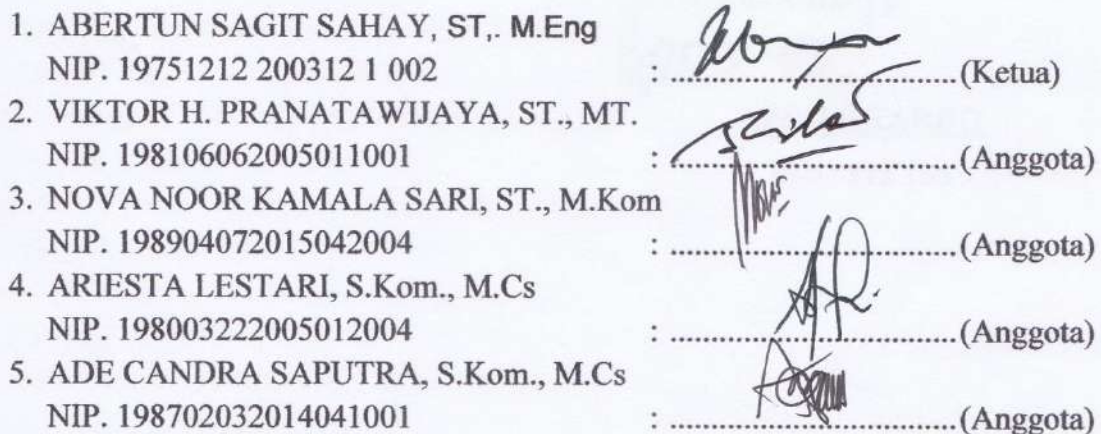 1. ABERTUN SAGIT SAHAY, ST,. M.Eng
NIP. 19751212 200312 1 002 : ................................(Ketua)
2. VIKTOR H. PRANATAWIJAYA, ST., MT.
NIP. 198106062005011001 : ................................(Anggota)
3. NOVA NOOR KAMALA SARI, ST., M.Kom
NIP. 198904072015042004 : ................................(Anggota)
4. ARIESTA LESTARI, S.Kom., M.Cs
NIP. 198003222005012004 : ................................(Anggota)
5. ADE CANDRA SAPUTRA, S.Kom., M.Cs
NIP. 198702032014041001 : ................................(Anggota)